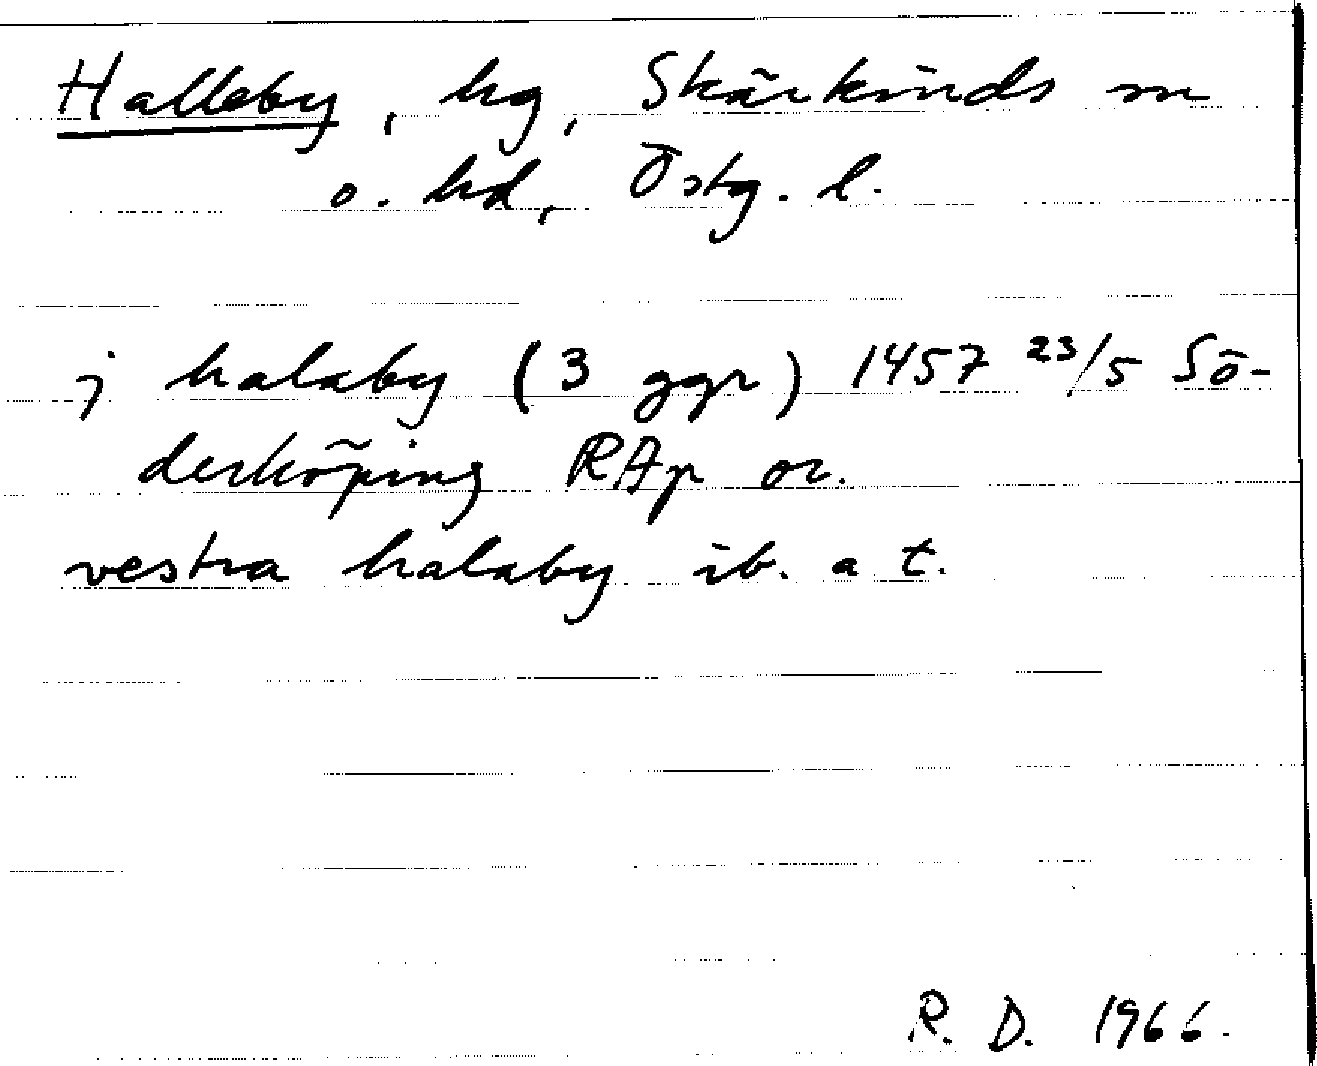 Halleby, hg, Skärkinds sn
o. hd, Östg. l.
j halaby (3 ggr) 1457 23/5 Sö-
derköping RAp or.
vestra halaby ib. a t.
R. D. 1966.